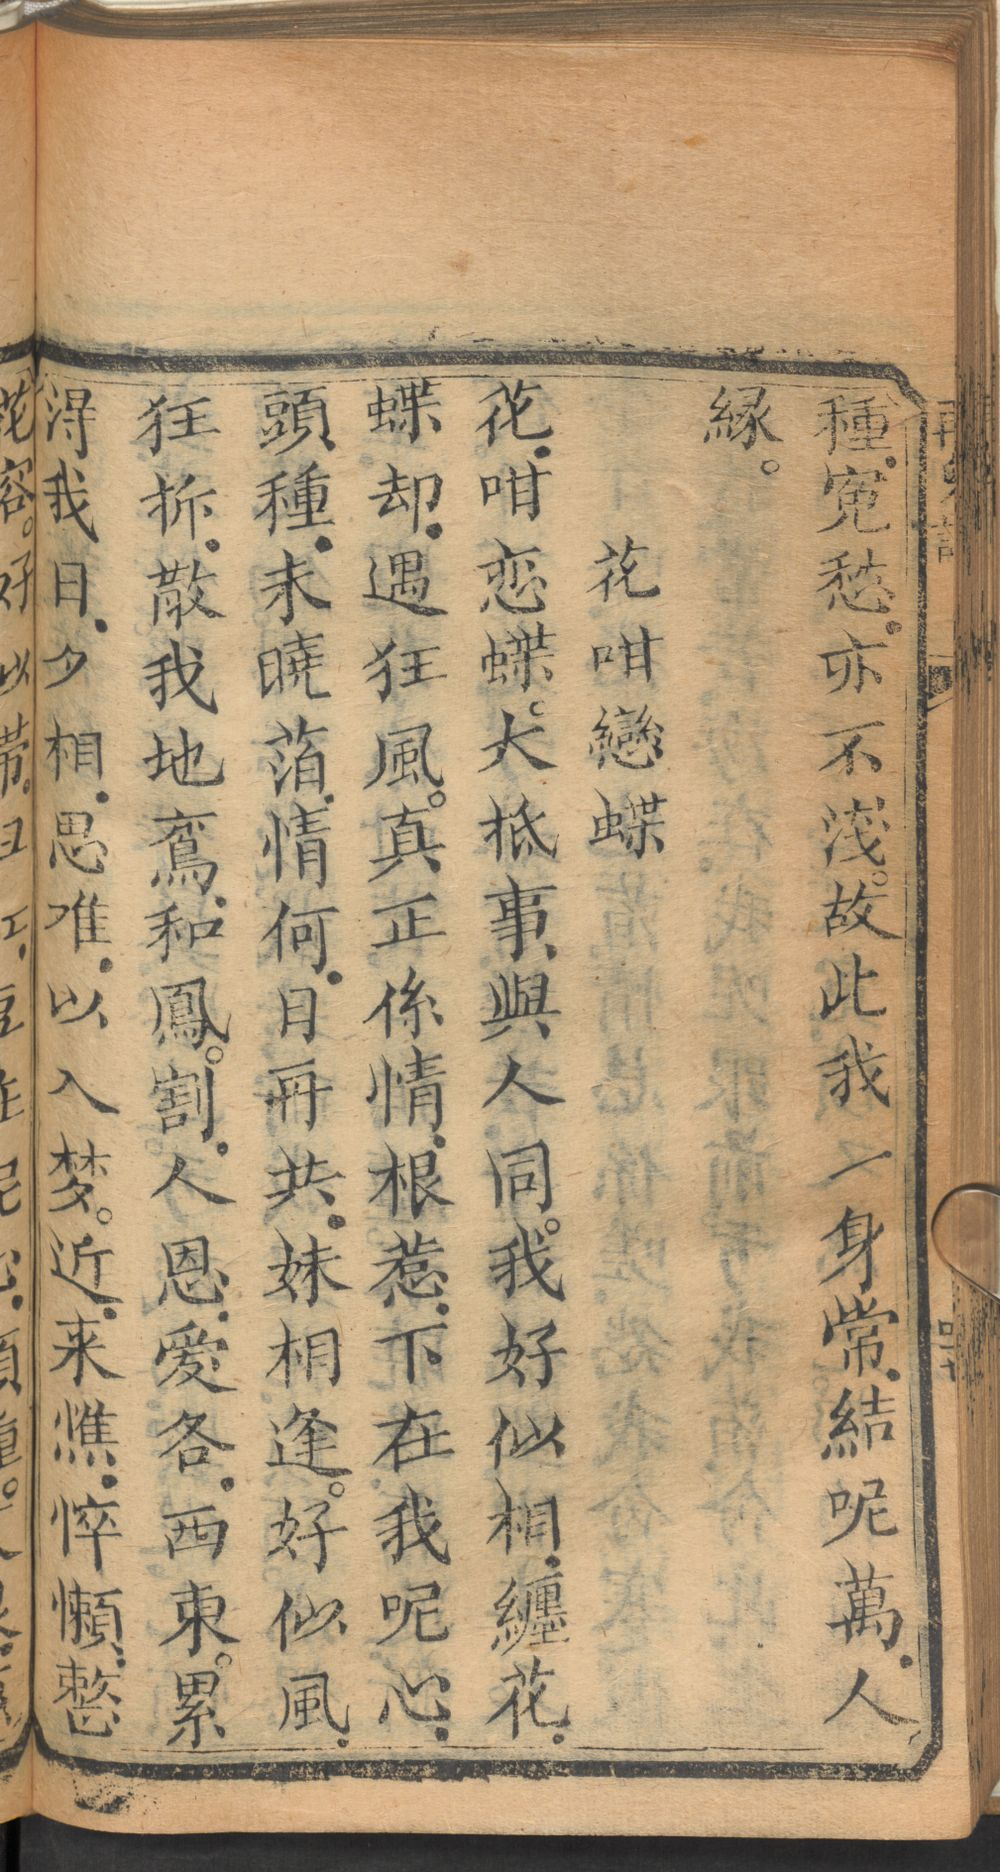 種.寃愁.亦不淺。故此我一身常.結呢萬.人
緣。
花咁戀蝶
花.咁恋蝶。大抵事.與人同。我好似相.纏花.
蝶却.遇狂風。真正係情.根惹.下在我呢心.
頭種.未曉萡.情何.日再共.妹相逢。好似風.
狂拆.散我地鴛.和鳳。割.人恩.愛各.西東。累
淂我日.夕相.思准.以入梦。近.来憔.悴懶.整
花容。好